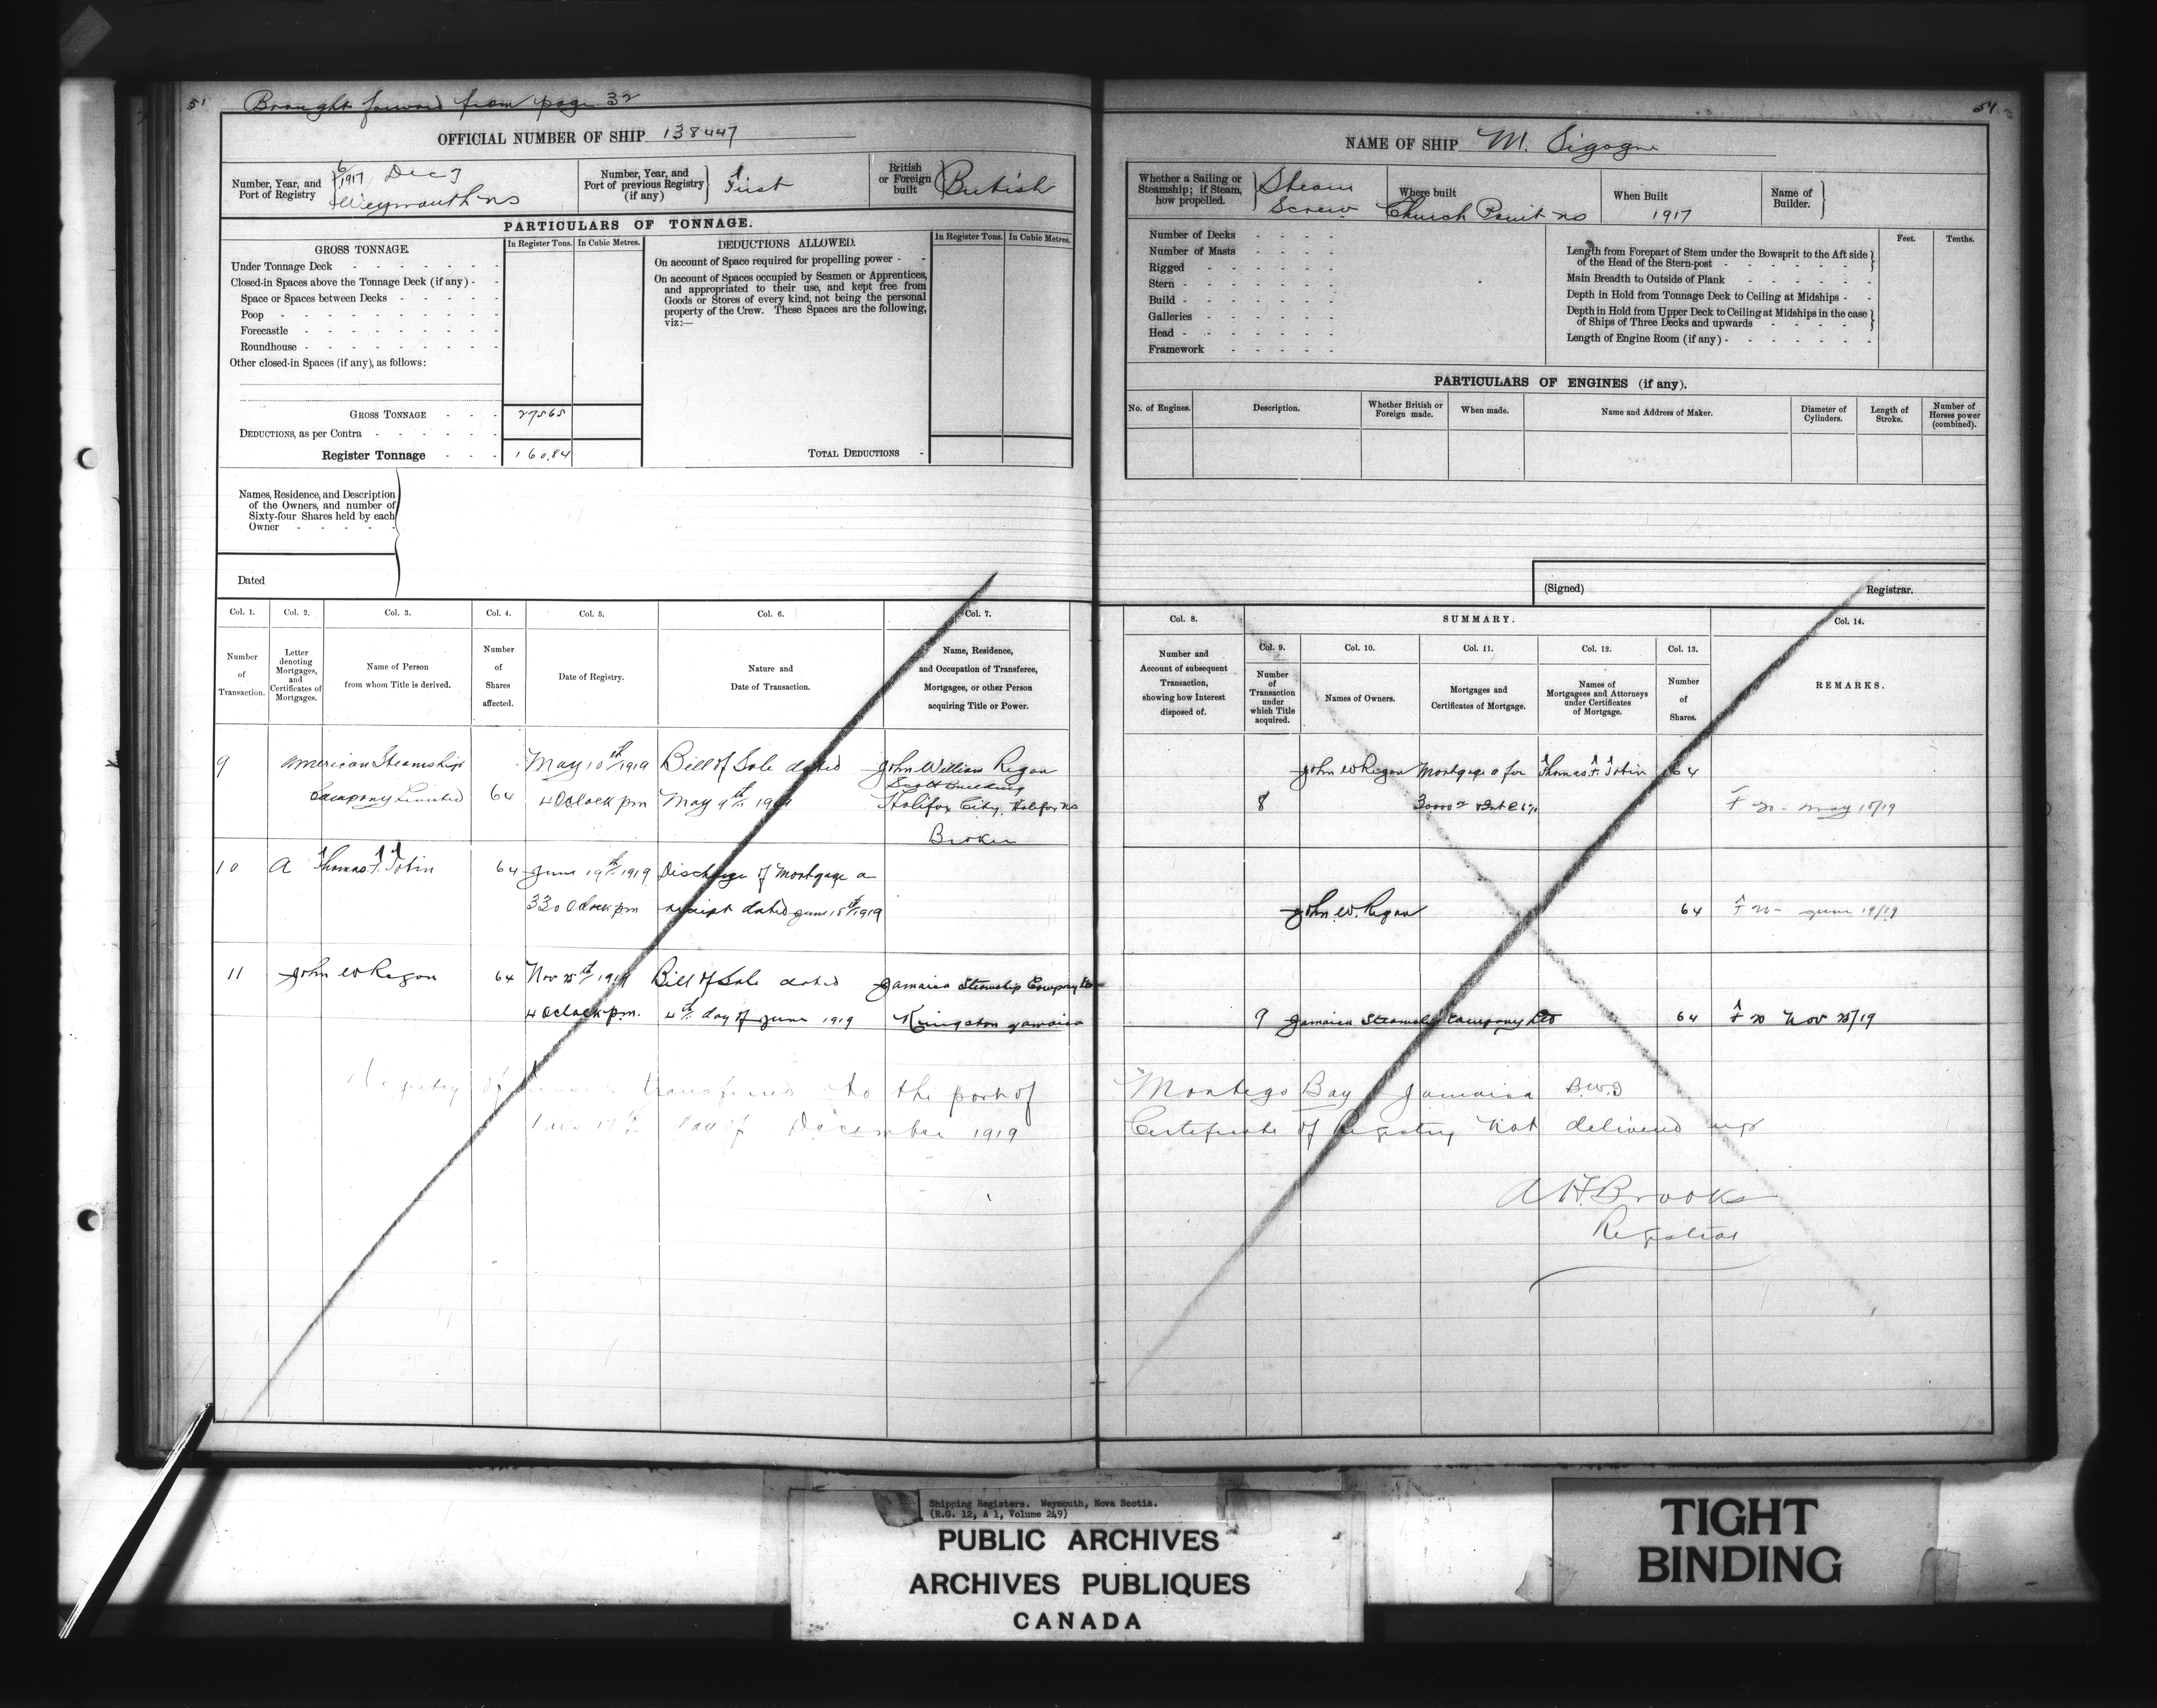 51
Brought forward from page 32
OFFICIAL NUMBER OF SHIP 138447
Number, Year, and Port of Registry
6/1917 Dec 7
Weymouth NS
Number, Year, and Port of previous Registry (if any)
First
British or Foreign built
British
PARTICULARS OF TONNAGE.
GROSS TONNAGE.
In Register Tons.
In Cubic Metres.
Under Tonnage Deck
Closed-in Spaces above the Tonnage Deck (if any)
Space or Spaces between Decks
Poop
Forecastle
Roundhouse
Other closed-in Spaces (if any), as follows:
GROSS TONNAGE 275.65
DEDUCTIONS, as per Contra
Register Tonnage 160.84
DEDUCTIONS ALLOWED.
In Register Tons.
In Cubic Metres.
On account of Space required for propelling power
On account of Spaces occupied by Seamen or Apprentices,
and appropriated to their use, and kept free from
Goods or Stores of every kind, not being the personal
property of the Crew. These Spaces are the following,
viz:—
TOTAL DEDUCTIONS
Names, Residence, and Description
of the Owners, and number of
Sixty-four Shares held by each
Owner
Dated
Col. 1. Number of Transaction.
Col. 2. Letter denoting Mortgages, and Certificates of Mortgages.
Col. 3. Name of Person from whom Title is derived.
Col. 4. Number of Shares affected.
Col. 5. Date of Registry.
Col. 6. Nature and Date of Transaction.
Col. 7. Name, Residence, and Occupation of Transferee, Mortgagee, or other Person acquiring Title or Power.
9 American Steamship May 10th/1919 Bill of Sale dated John William Regan
Scott Building
Company Limited 64 4 Oclock pm May 9th 1919 Halifax City, Halifax NS
Broker
10 A Thomas F. Tobin 64 June 19th 1919 Discharge of Mortgage A
330 Oclock pm receipt dated June 18th/1919
11 John W Regan 64 Nov 25th/1919 Bill of Sale dated Jamaica Steamship Company Ltd
4 Oclock pm. 4th day of June 1919 Kingston Jamaica
Registry of transferred to the port of
17th day of December 1919
51
NAME OF SHIP M. Sigogne
Whether a Sailing or Steamship; if Steam, how propelled.
Steam
Screw
Where built
Church Point NS
When Built
1917
Name of Builder.
Number of Decks
Number of Masts
Rigged
Stern
Build
Galleries
Head
Framework
Feet.
Tenths.
Length from Forepart of Stem under the Bowsprit to the Aft side
of the Head of the Stern-post
Main Breadth to Outside of Plank
Depth in Hold from Tonnage Deck to Ceiling at Midships
Depth in Hold from Upper Deck to Ceiling at Midships in the case
of Ships of Three Decks and upwards
Length of Engine Room (if any)
PARTICULARS OF ENGINES (if any).
No. of Engines.
Description.
Whether British or Foreign made.
When made.
Name and Address of Maker.
Diameter of Cylinders.
Length of Stroke.
Number of Horses power (combined).
(Signed)
Registrar.
SUMMARY.
Col. 8. Number and Account of subsequent Transaction, showing how Interest disposed of.
Col. 9. Number of Transaction under which Title acquired.
Col. 10. Names of Owners.
Col. 11. Mortgages and Certificates of Mortgage.
Col. 12. Names of Mortgagees and Attorneys under Certificates of Mortgage.
Col. 13. Number of Shares.
Col. 14. REMARKS.
John W Regan Mortgage A for Thomas F. Tobin 64
8 30000 F 20 - May 10/19
John W. Regan 64 F 20 - June 19/19
9 Jamaica Steamship Company Ltd 64 F 20 Nov 25/19
Montego Bay Jamaica B.W.I
Certificate of Registry not delivered up
A H Brooks
Registrar
Shipping Registers. Weymouth, Nova Scotia.
(R.G. 12, A 1, Volume 249)
PUBLIC ARCHIVES
ARCHIVES PUBLIQUES
CANADA
TIGHT
BINDING